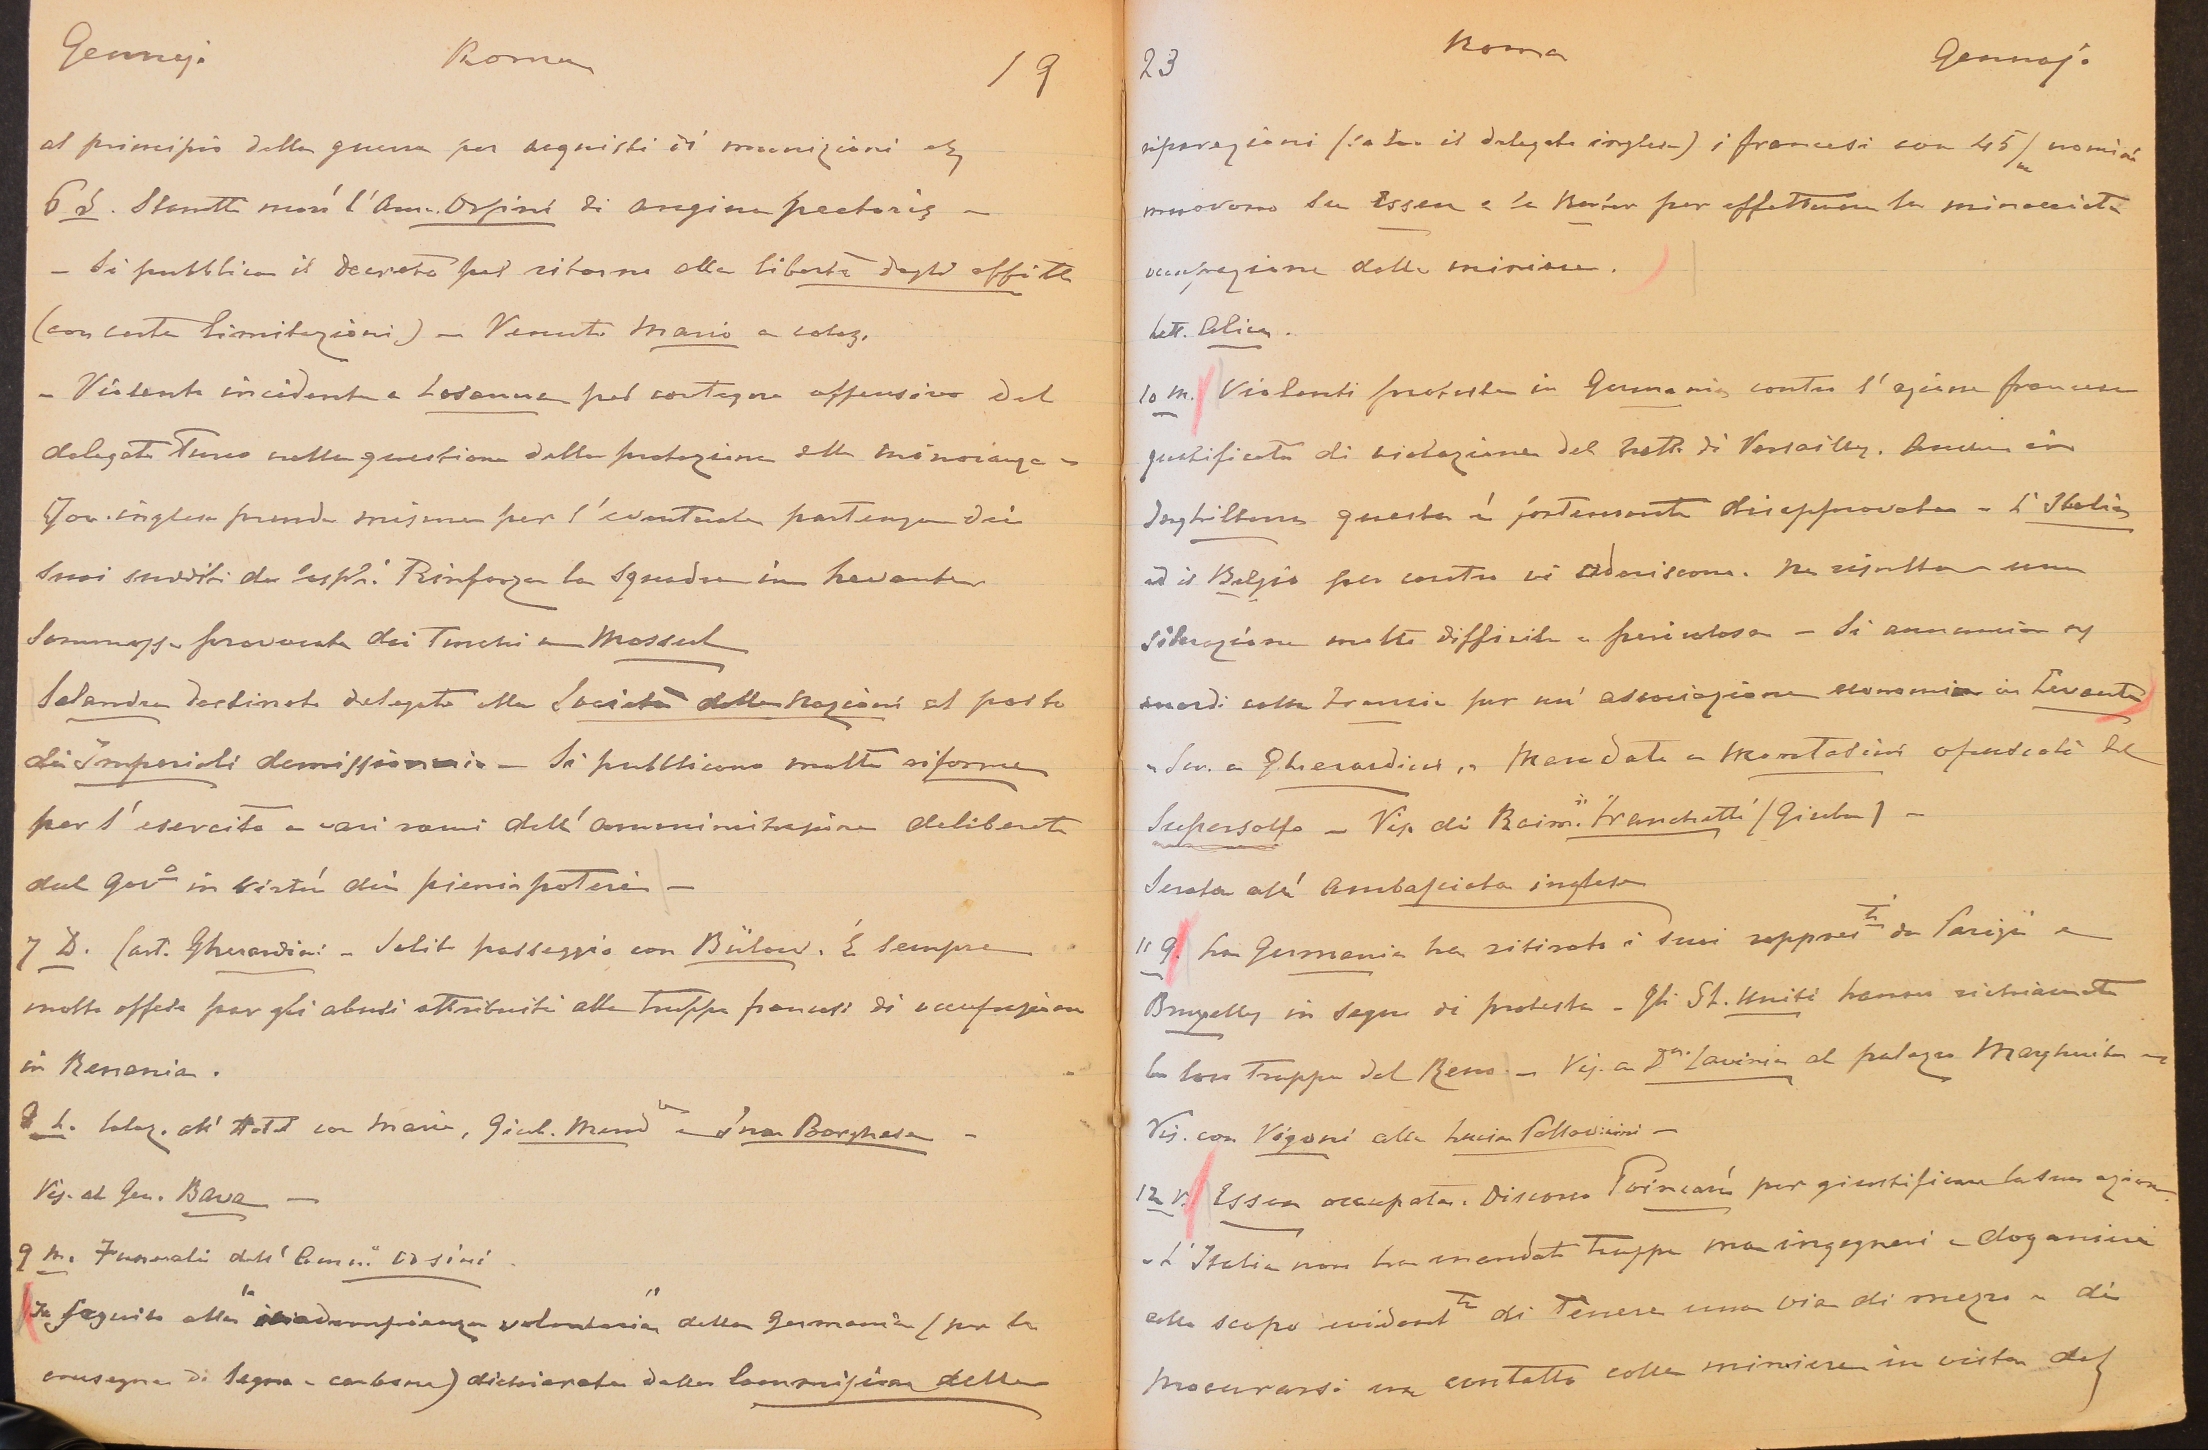 Gennajo Roma 19
al principio della guerra per acquisti di munizioni etc
6 S. Stanotte morì l'Amm. Orsini di angina pectoris –
– Si pubblica il decreto pel ritorno alla libertà degli affitti
(con certe limitazioni) – Venuto Mario a colaz.
– Violento incidente a Losanna pel contegno offensivo del
delegato Turco nella questione della protezione delle minoranze –
Gov. inglese prende misure per l'eventuale partenza dei
suoi sudditi da Cospli. Rinforza la squadra in Levante
Sommossa provocata dai Turchi a Mossul
Salandra destinato delegato alla Società delle Nazioni al posto
di Imperiali demissionario – Si pubblicano molte riforme
per l'esercito e vari rami dell'amministrazione deliberate
dal Govo in virtù dei pieni poteri –
7 D. Cart. Gherardini – Solito passeggio con Bülow. È sempre
molto offeso per gli abusi attribuiti alle truppe francesi di occupazione
in Renania.
8 L. Colaz. all'Hotel con Mario, Giul. Mend e Ina Borghese –
Vis. al Gen. Bava –
9 M. Funerali dell'Amm. Orsini
In seguito alla "inadempienza volontaria" della Germania (per la
consegna di legna e carbone) dichiarata dalla Commissione delle
23 Roma Gennajo
riparazioni (salvo il delegato inglese) i francesi con 45/m uomini
muovono su Essen e la Ruhr per effettuare la minacciata
occupazione delle miniere.
Lett. Alica.
10 M. Violenti proteste in Germania contro l'azione francese
qualificata di violazione del tratt. di Versailles. Anche in
Inghilterra questa è fortemente disapprovata – L'Italia
ed il Belgio per contro vi aderiscono. Ne risulta una
situazione molto difficile e pericolosa – Si annunciano
accordi colla Francia per un'associazione economica in Levante
– Scr. a Gherardini, – Mandato a Montasini opuscoli del
Supersolfo – Vis. di Raim. Franchetti (Giuba) –
Serata all'Ambasciata inglese
11 G. La Germania ha ritirato i suoi rappresti da Parigi e
Bruxelles in segno di protesta – Gli St. Uniti hanno richiamato
le loro truppe dal Reno – Vis. a Da. Lavinia al palazzo Margherita –
Vis. con Vigoni alla Lucia Pallavicini –
12 V. Essen occupata. Discorso Poincaré per giustificare la sua azione.
– L'Italia non ha mandato truppe ma ingegneri e doganieri
collo scopo evidente di tenere una via di mezzo e di
procurarsi un contatto colle miniere in vista del